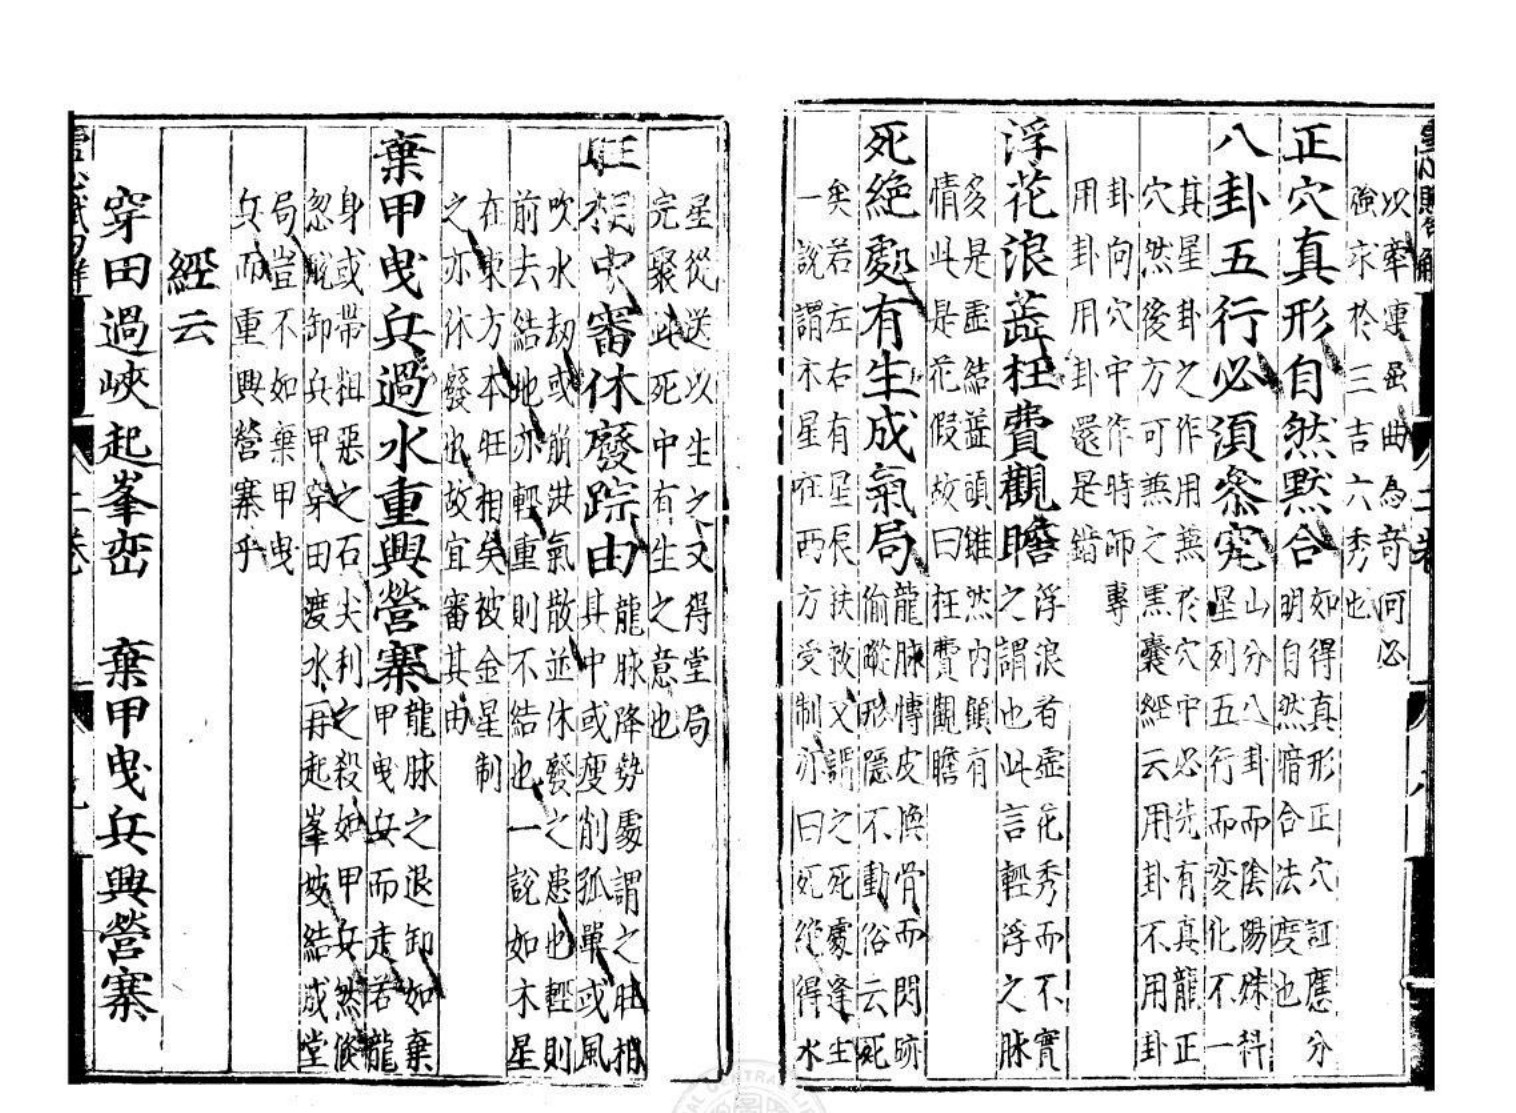 以牽連屈曲為奇何必
強求於三吉六秀也
正穴真形自然默合
如得真形正穴証應分
明自然暗合法度也
八卦五行必須叅究
山分八卦而陰陽殊科
星列五行而变化不一
其星卦之作用兼於穴中必先有真龍正
穴然後方可兼之黑囊經云用卦不用卦
卦向穴中作時師專
用卦用卦還是錯
浮花浪蕋枉費觀瞻
浮浪者虛花秀而不實
之謂也此言輕浮之脉
多是虛結蕋頭雖然內顧有
情此是花假故曰枉費觀瞻
死絕處有生成氣局
龍脉博皮換骨而閃跡
偷蹤形隱不動俗云死
矣若左右有星辰扶救又謂之死處逢生
一說謂木星在西方受制亦曰死絕得水
星從送以生之又得堂局
完聚此死中有生之意也
旺相中審休廢踪由
龍脉降勢處謂之旺相
其中或瘦削孤單或風
吹水刼或崩洪氣散並休廢之患也輕則
前去結地亦輕重則不結也一說如木星
在東方本旺相矣被金星制
之亦休廢也故宜審其由
棄甲曳兵過水重興營寨
龍脉之退卸如棄
甲曳兵而走若龍
身或帶粗惡之石尖利之殺如甲兵然倐
忽脫卸兵甲穿田渡水再起峯結成堂
局豈不如棄甲曳
兵而重興營寨乎
經云
穿田過峽起峯巒 棄甲曳兵興營寨